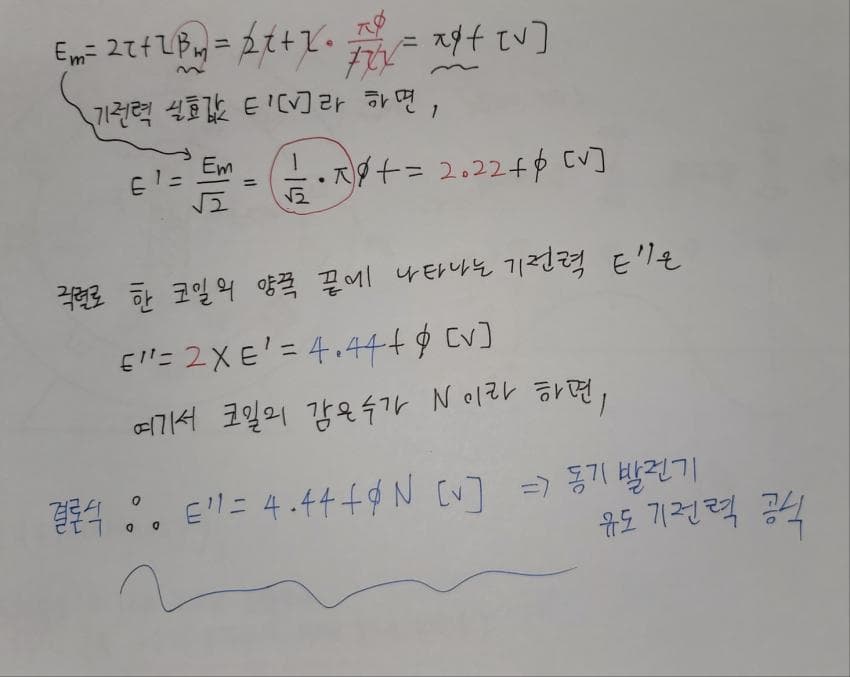 Em = 2τfl Bm = 2τfl · πφ/2τl = πφf [V]
기전력 실효값 E'[V]라 하면,
E' = Em/√2 = 1/√2 · πφf = 2.22fφ [V]
직렬로 한 코일의 양쪽 끝에 나타나는 기전력 E''은
E'' = 2 X E' = 4.44fφ [V]
여기서 코일의 감은수가 N이라 하면,
결론식 ∴ E'' = 4.44fφN [V] => 동기 발전기
유도 기전력 공식